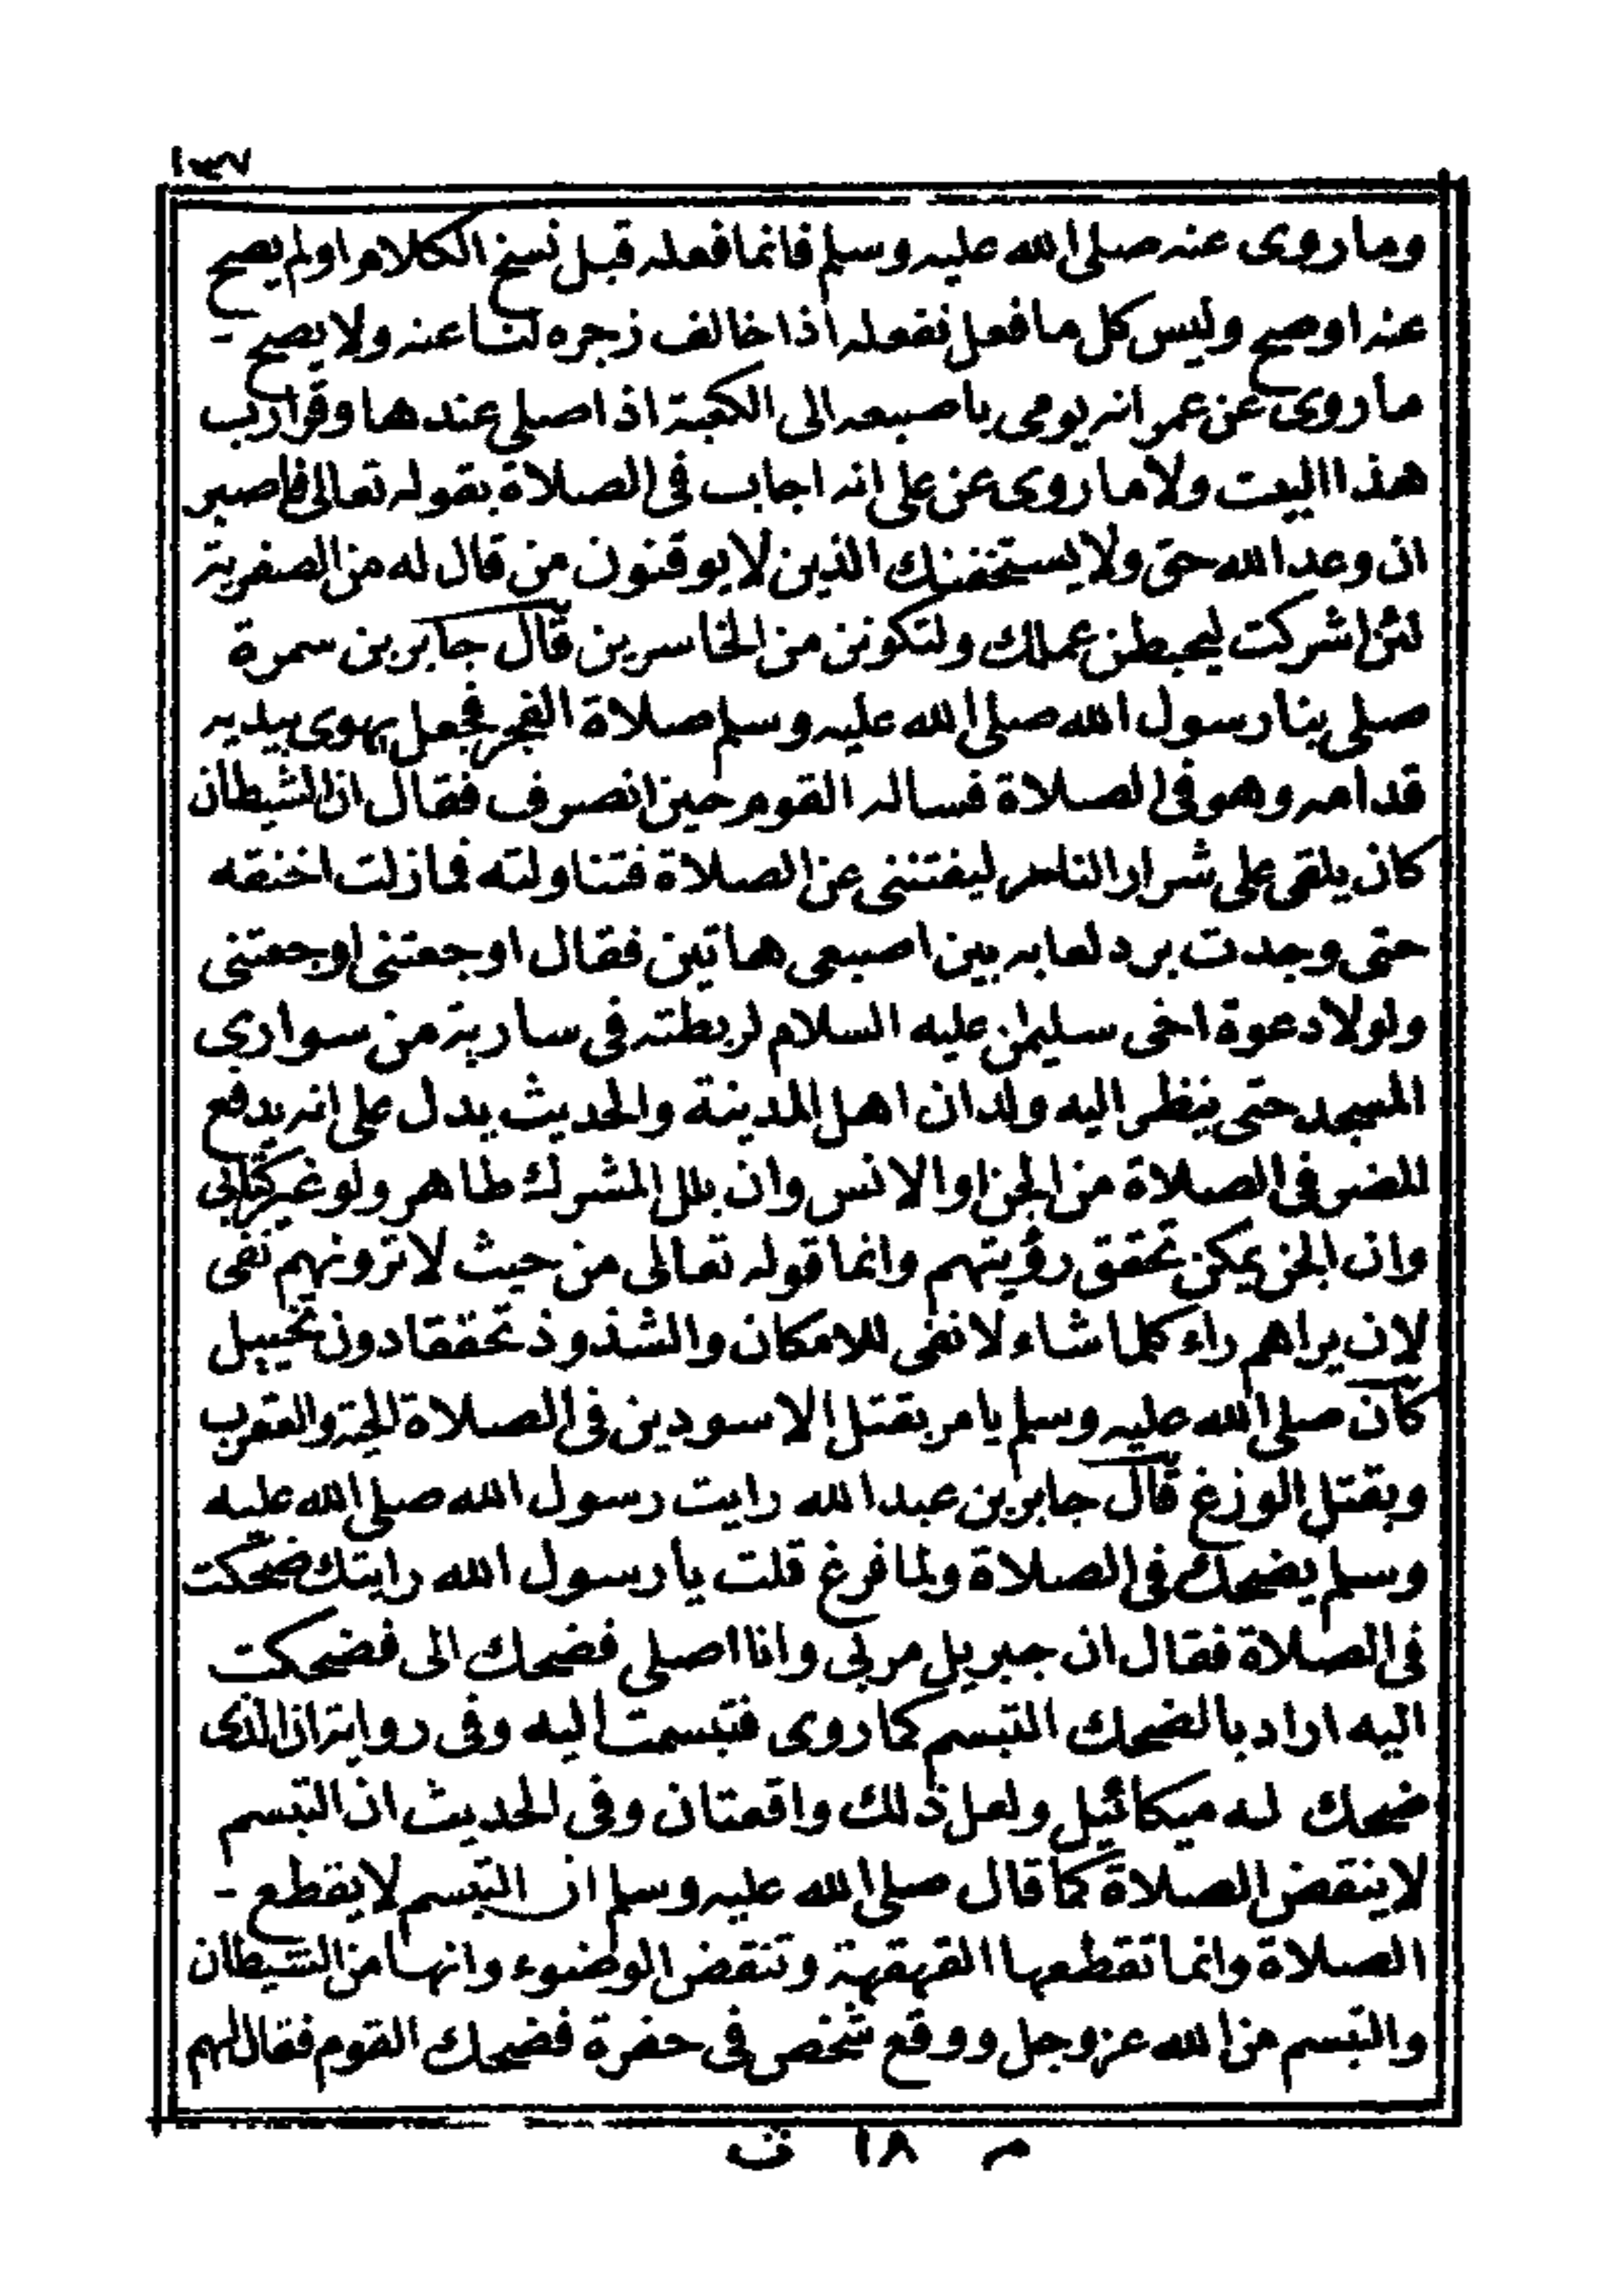 ١٣٧
وما روى عنه صلى الله عليه وسلم فانما فعله قبل نسخ الكلام او لم يصح
عنه او صح وليس كل ما فعل نفعله اذا خالف زجره لنا عنه ولا يصح -
ما روى عن عمر انه يومى باصبعه الى الكعبة اذا صلى عندها وقرا رب
هذا البيت ولا ما روى عن على انه اجاب فى الصلاة بقوله تعالى فاصبر
ان وعد الله حق ولا يستخفنك الذين لا يوقنون من قال له من الصفرية
لئن اشركت ليحبطن عملك ولتكونن من الخاسرين قال جابر بن سمرة
صلى بنا رسول الله صلى الله عليه وسلم صلاة الفجر فجعل يهوى بيديه
قدامه وهو فى الصلاة فساله القوم حين انصرف فقال ان الشيطان
كان يلقى على شرار النار ليفتننى عن الصلاة فتناولته فما زلت اخنقه
حتى وجدت برد لعابه بين اصبعى هاتين فقال اوجعتنى اوجعتنى
ولولا دعوة اخى سليمن عليه السلام لربطته فى سارية من سواري
المسجد حتى ينظر اليه ولدان اهل المدينة والحديث يدل على انه يدفع
للضر فى الصلاة من الجن او الانس وان بلل المشرك طاهر ولو غير كتابى
وان الجن يمكن تحقق رؤيتهم وانما قوله تعالى من حيث لا ترونهم نفى
لان يراهم راء كلما شاء لا نفى للامكان والشذوذ تحققا دون تخييل
كان صلى الله عليه وسلم يامر بقتل الاسودين فى الصلاة الحية والعقرب
وبقتل الوزغ قال جابر بن عبد الله رايت رسول الله صلى الله عليه
وسلم يضحك فى الصلاة ولما فرغ قلت يا رسول الله رايتك ضحكت
فى الصلاة فقال ان جبريل مر بى وانا اصلى فضحك الى فضحكت
اليه اراد بالضحك التبسم كما روى فتبسمت اليه وفى رواية ان الذى
ضحك له ميكائيل ولعل ذلك واقعتان وفى الحديث ان التبسم
لا ينقض الصلاة كما قال صلى الله عليه وسلم ان التبسم لا يقطع -
الصلاة وانما تقطعها القهقهة وتنقض الوضوء وانها من الشيطان
والتبسم من الله عز وجل ووقع شخص فى حفرة فضحك القوم فقال لهم
م ١٨ ث